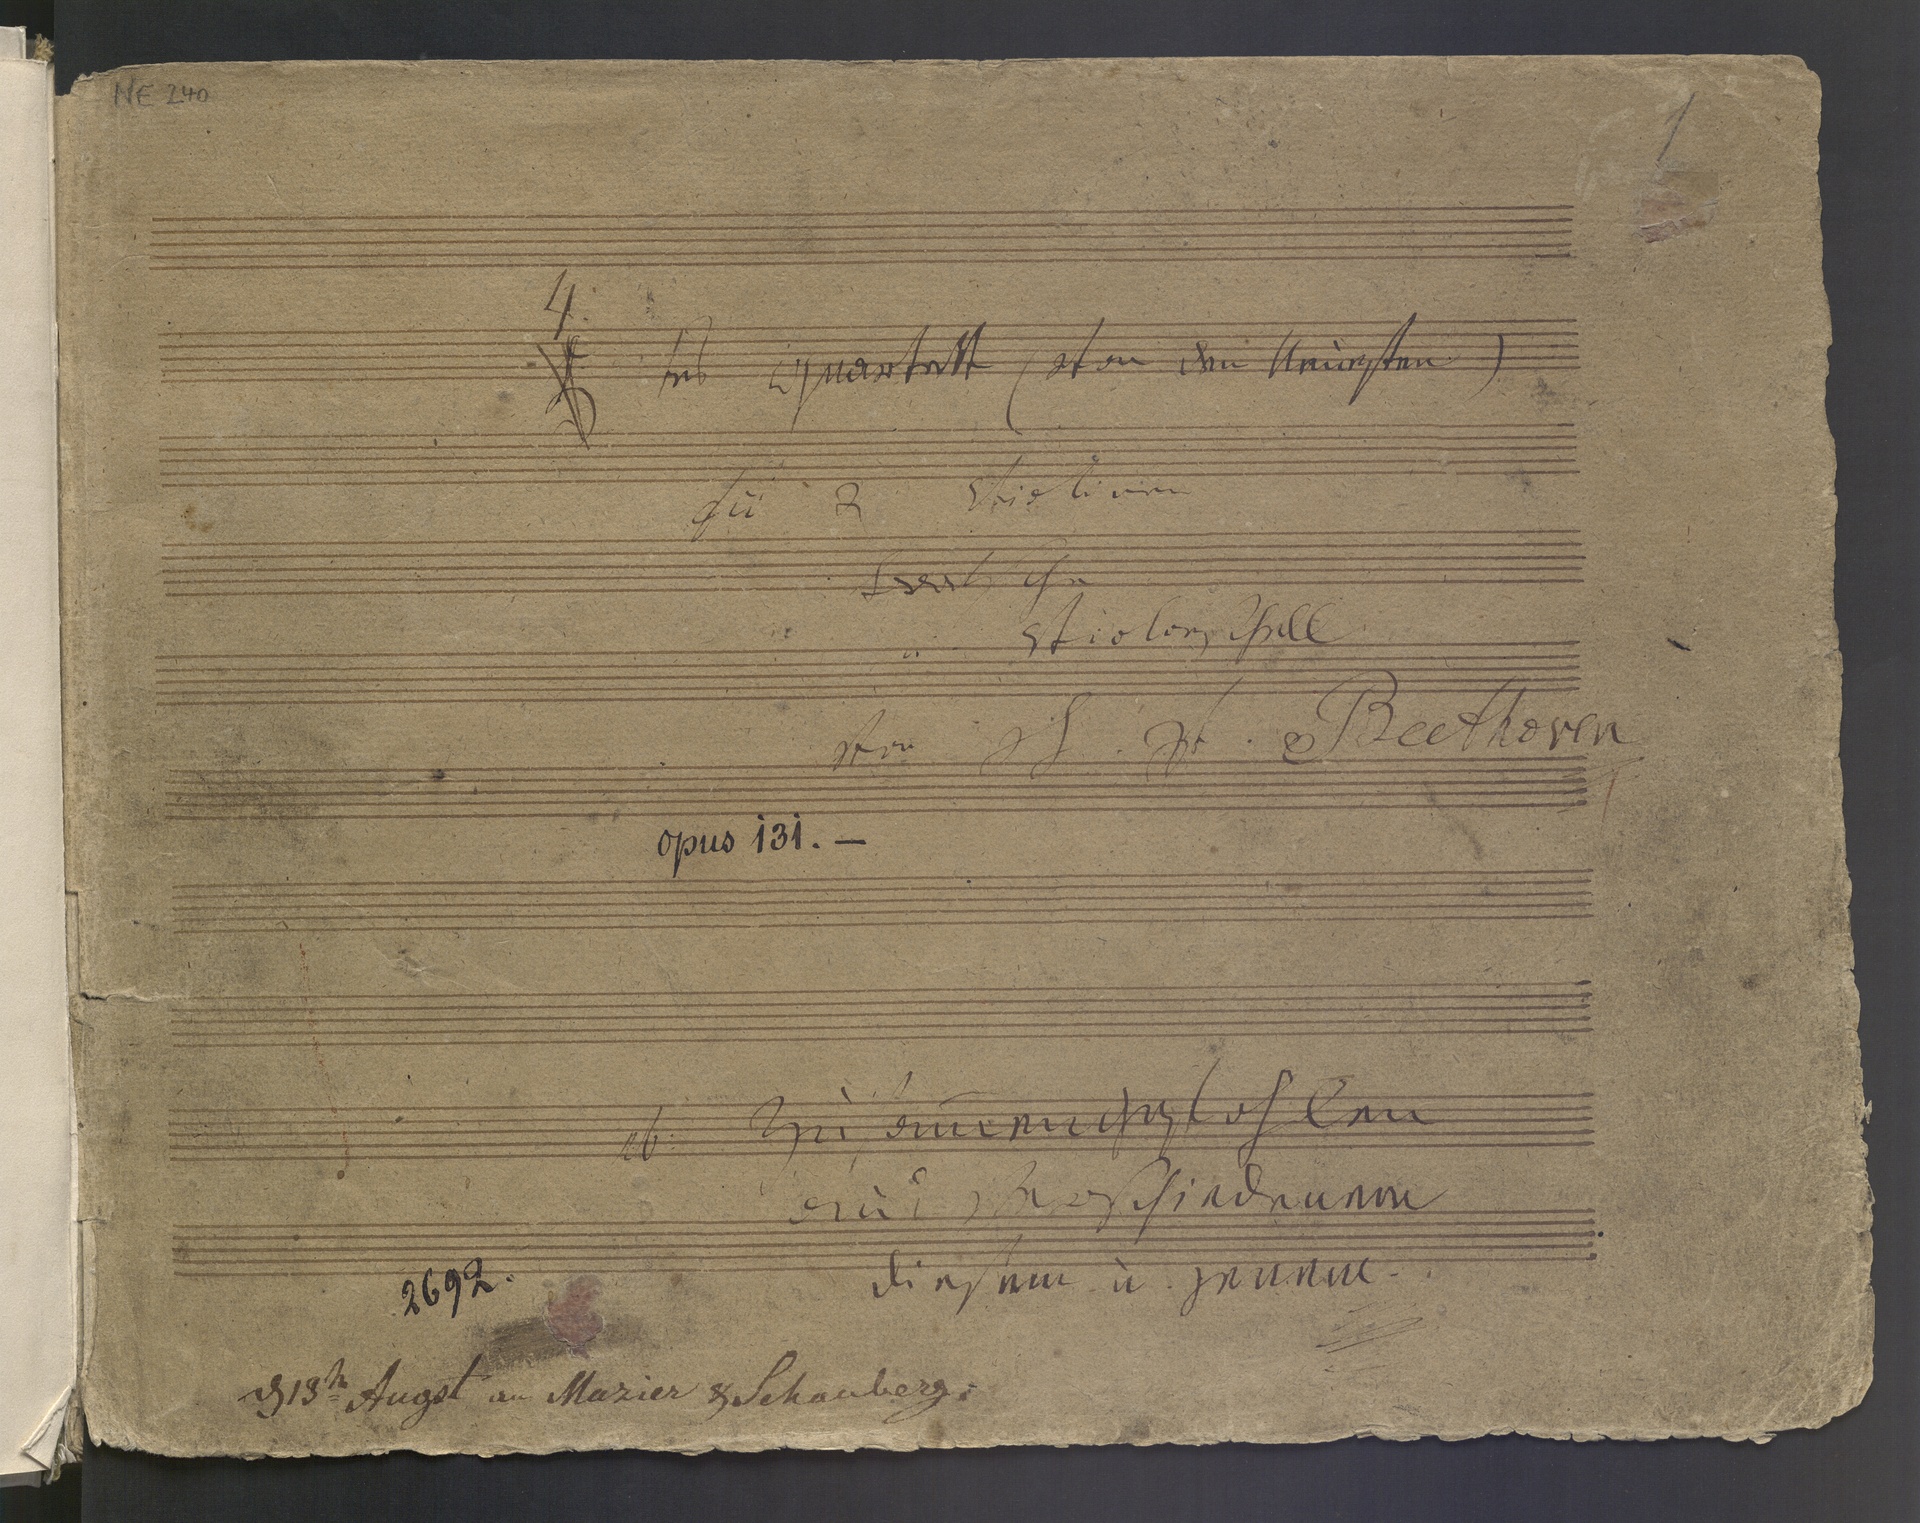 NE 240
1
4.
tes Quartett (von den Neuesten)
für 2 Violinen
Bratsche
u. Violonschell
von L. v. Beethoven
opus 131. —
nb. Zusammengestohlen
aus Verschiedenem
diesem u. jenem
2692.
13ten Augst an Mazier & Schauberg.